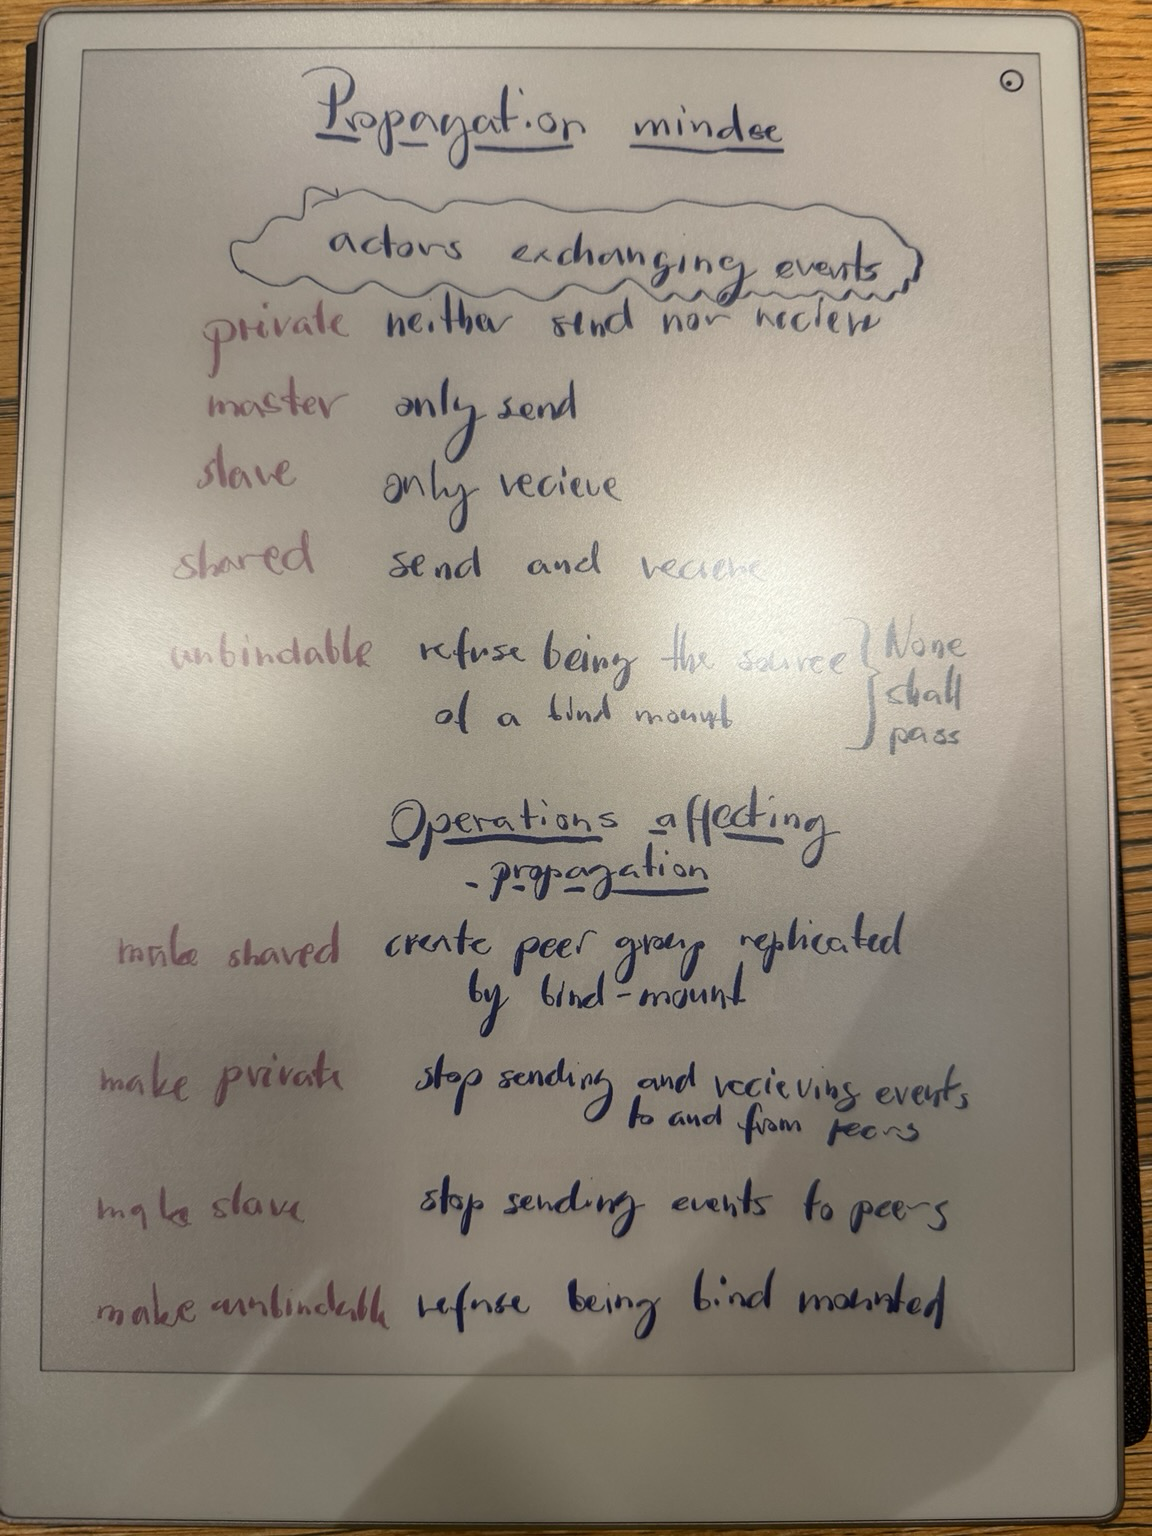 Propagation mindse
actors exchanging events
private neither send nor recieve
master only send
slave only recieve
shared send and recieve
unbindable refuse being the source } None
of a bind mount } shall
pass
Operations affecting
- propagation
make shared create peer group replicated
by bind-mount
make private stop sending and recieving events
to and from peers
make slave stop sending events to peers
make unbindable refuse being bind mounted